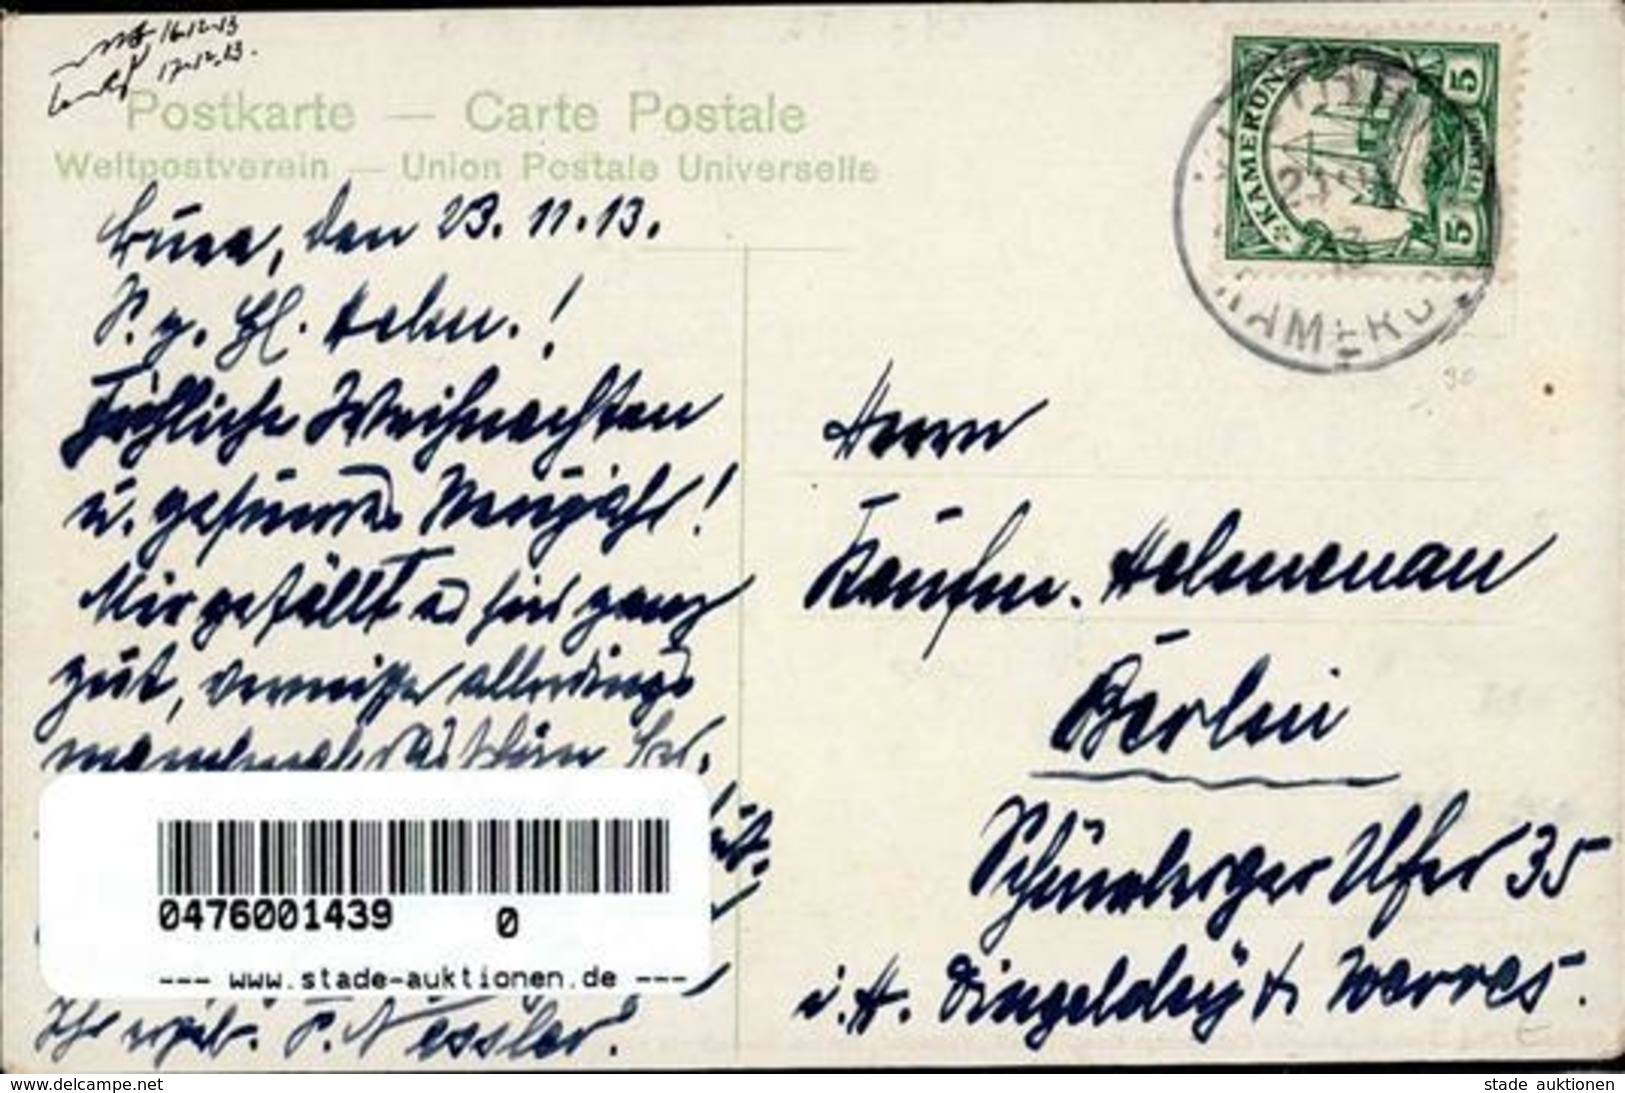 16.12.13
17.12.13.
Postkarte — Carte Postale
Weltpostverein — Union Postale Universelle
KAMERUN
5
5
KAMERU
Buea, den 23. 11. 13.
S. g. Helm.!
Fröhliche Weihnachten
u. gesundes Neujahr!
Mir gefällt es hier ganz
gut, vermisse allerdings
manchmal
Herrn
Kaufm. Helmenau
Berlin
Schöneberger Ufer 35
i. H. Dingeldey & Werres.
0476001439 0
--- www.stade-auktionen.de ---
Ihr ergeb. P. Nessler.
www.delcampe.net
stade auktionen